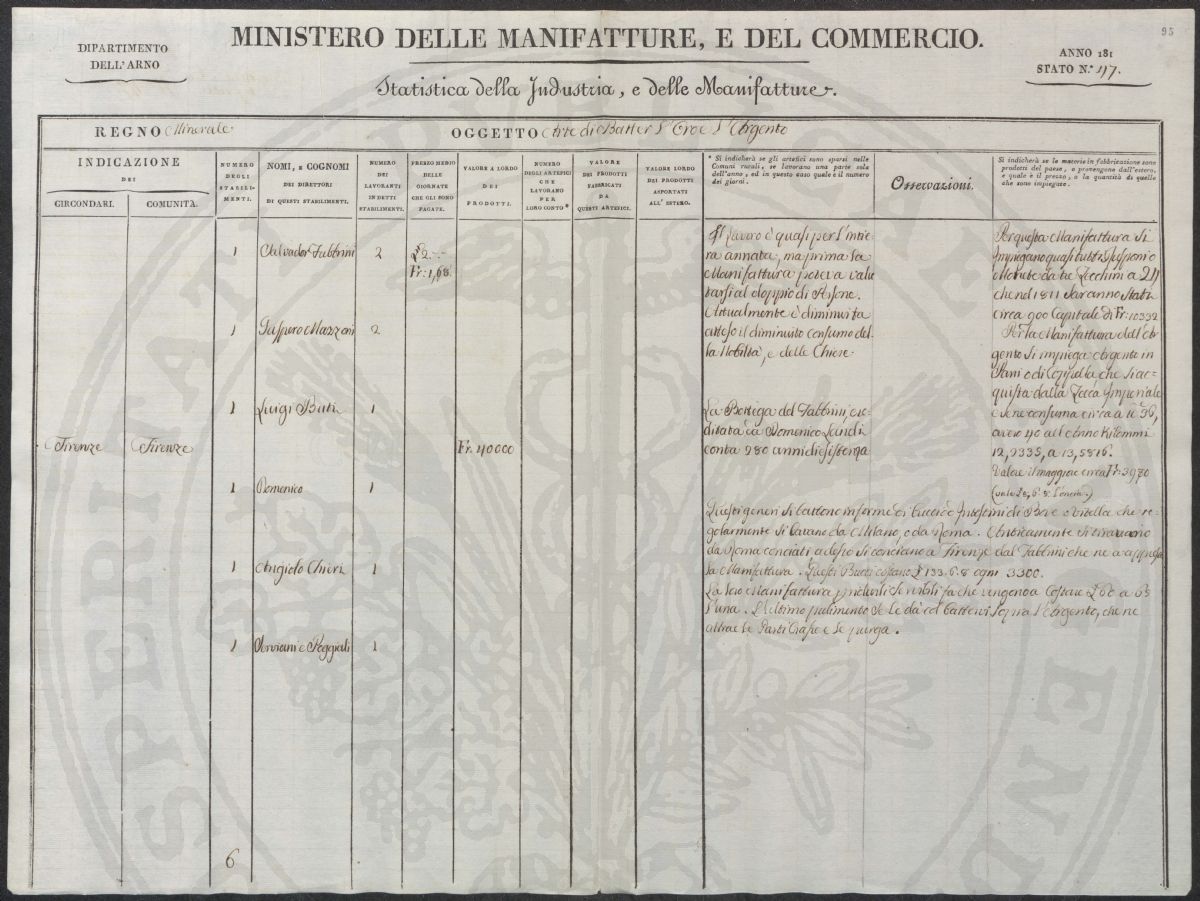 95
DIPARTIMENTO
DELL'ARNO
MINISTERO DELLE MANIFATTURE, E DEL COMMERCIO.
ANNO 181
STATO N.° 47.
Statistica della Industria, e delle Manifatture.
REGNO Minerale
OGGETTO Arte di Batter l'Oro e l'Argento
INDICAZIONE
DEI
CIRCONDARI.
COMUNITÀ.
NUMERO
DEGLI
STABILI-
MENTI.
NOMI, E COGNOMI
DEI DIRETTORI
DI QUESTI STABILIMENTI.
NUMERO
DEI
LAVORANTI
IN DETTI
STABILIMENTI.
PREZZO MEDIO
DELLE
GIORNATE
CHE GLI SONO
PAGATE.
VALORE A LORDO
DEI
PRODOTTI.
NUMERO
DEGLI ARTEFICI
CHE
LAVORANO
PER
LORO CONTO*
VALORE
DEI PRODOTTI
FABBRICATI
DA
QUESTI ARTEFICI.
VALORE LORDO
DEI PRODOTTI
ASPORTATI
ALL'ESTERO.
* Si indicherà se gli artefici sono sparsi nelle
Comuni rurali, se lavorano una parte sola
dell'anno, ed in questo caso quale è il numero
dei giorni.
Osservazioni.
Si indicherà se le materie in fabbricazione sono
prodotti del paese, o provengono dall'estero,
e quale è il prezzo, e la quantità di quelle
che sono impiegate.
Firenze
Firenze
1 Salvador Fabbrini 2 £ 2.-.-
Fr: 1,68
1 Gasspero Mazzoni 2
1 Luigi Buti 1
Fr. 40000
1 Domenico 1
1 Angiolo Chieri 1
1 e Poggiali 1
6
Il lavoro è quasi per l'intie-
ra annata, ma prima la
Manifattura poteva valu
tarsi al doppio di
Attualmente è diminuita
atteso il diminuito consumo del-
la Nobiltà, e delle Chiese
La Bottega del Fabbrini, e-
ditata da Domenico Landi
conta 280 anni di esistenza
Per questa Manifattura si
Impiegano quasi tutti
Monete da tre Zecchini a 24
che nel 1811 saranno stati
circa 900 Capitale di Fr: 10332
Per la Manifattura dell'Ar-
gento si impiega Argento in
Pani o di Coppella, che si ac-
quista dalla Zecca Imperiale
e se ne consuma circa a 36,
a 40 all'Anno Kilommi
12,2335, a 13,5816.
Valore il maggiore circa Fr: 3970
(vale £ 8, 6. 8. l'oncia.)
Questi generi si battono in forme di Bucci o di Bove o Vitella che re-
golarmente si da Milano, o da Roma. Anticamente si tiravano
da Roma conciati adesso si conciano a Firenze dal Fabbrini che ne a appresa
la Manifattura. Questi Bucci costano £ 133.6.8 ogni 3300.
La loro Manifattura fa che vengono a Costare £ 60 a 65
l'una. L'ultimo pulimento se le dà col battervi sopra l'Argento, che ne
attrae le Parti Grasse e le purga.